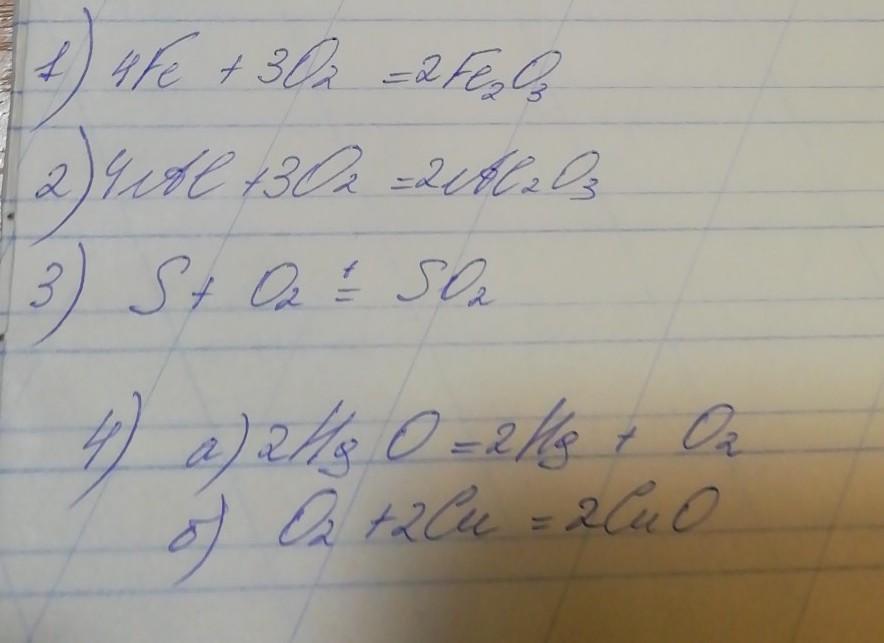 1) 4Fe + 3O₂ = 2Fe₂O₃
2) 4Al + 3O₂ = 2Al₂O₃
3) S + O₂ =ᵗ SO₂
4) а) 2HgO = 2Hg + O₂
б) O₂ + 2Cu = 2CuO